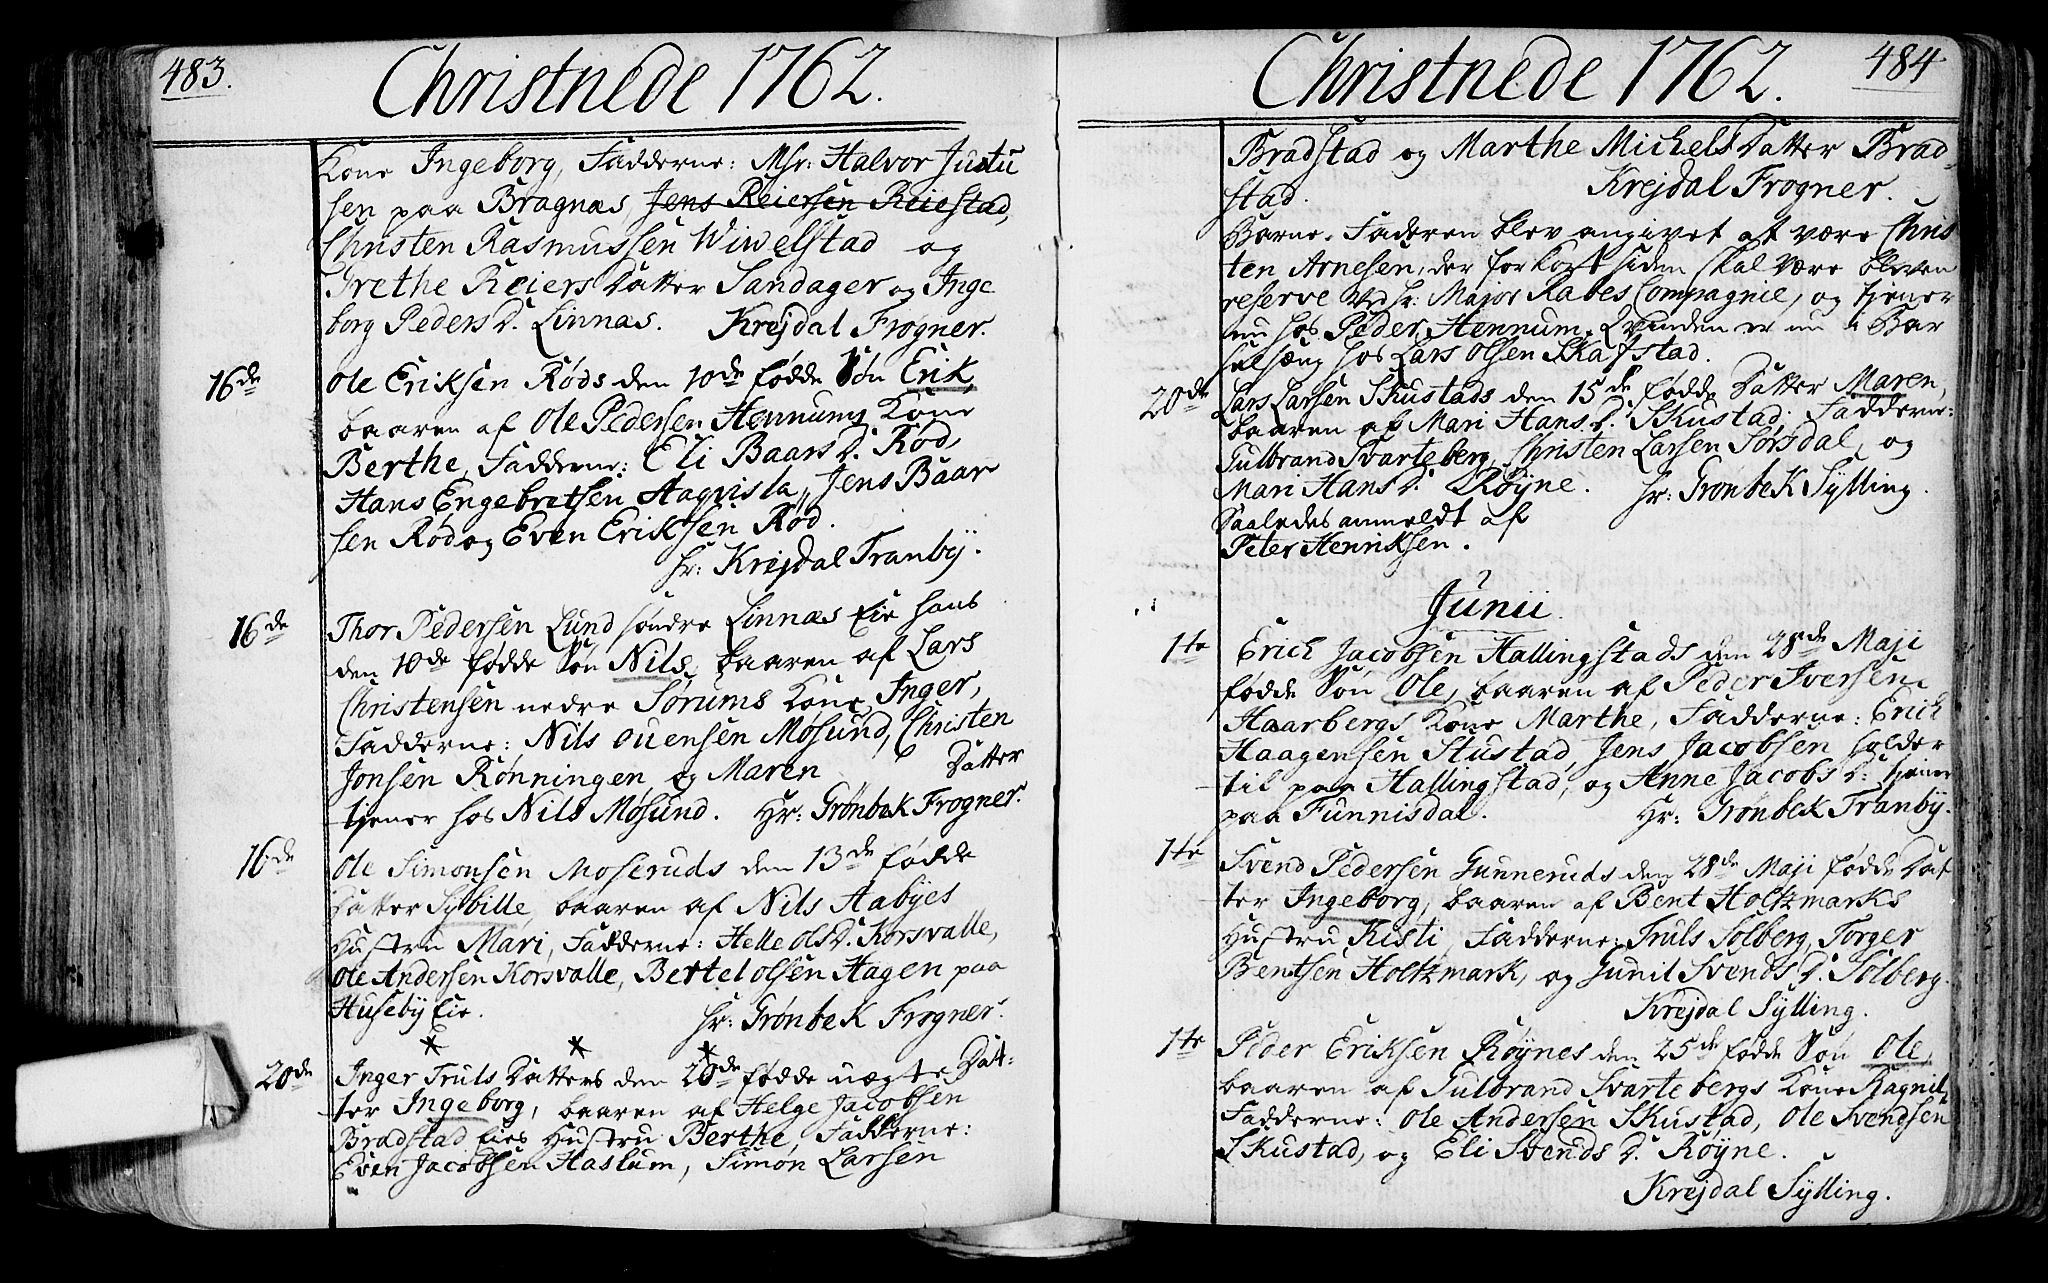 483.
Christnede 1762.
Kone Ingeborg, Fadderne: Msr: Halvor Justu
sen paa Bragnæs, Jens Reiersen Reiestad,
Christen Rasmussen Wiwelstad og
Grethe Reiers Datter Sandager og Inge
borg Peders D. Linnæs. Krejdal Frogner.
16de Ole Eriksen Røds den 10de fødde Søn Erik,
baaren af Ole Pedersen Hennums Kone
Berthe, Fadderne: Eli Baars D. Rød,
Hans Engebretsen Aaqvisla, Jens Baar
sen Rød og Even Eriksen Rød.
Hr: Krejdal Tranbÿ.
16de Thor Pedersen Lund søndre Linnæs Eie hans
den 10de fødde Søn Nils, baaren af Lars
Christensen nedre Sørums Kone Inger,
Fadderne: Nils Ouensen Møsund, Christen
Jonsen Rønningen, og Maren Datter
tjener hos Nils Møsund. Hr: Grønbek Frogner.
16de Ole Simonsen Moseruds den 13de fødde
Datter Sybille, baaren af Nils Aabyes
Hustru Mari, Fadderne: Helle Ols D. Korsvalle,
Ole Andersen Korsvalle, Bertel Olsen Hagen paa
Husebÿ Eie. Hr: Grønbek Frogner.
* * *
20de Inger Truls Datters den 20de fødde uægte Dat-
ter Ingeborg, baaren af Helge Jacobsen
Bradstad Eies Hustru Berthe, Fadderne:
Even Jacobsen Haslum, Simon Larsen
484
Christnede 1762.
Bradstad og Marthe Michels Datter Brad-
stad. Krejdal Frogner.
Barne-Faderen blev angivet at være Chris
ten Arnesen, der for kort siden skal være bleven
reserve ved Hr: Major Rabes Compagnie, og tjener
nu hos Peder Hennum. Qvinden er nu i Bar
selseng hos Lars Olsen Skafstad.
20de Lars Larsen Skustads den 15de fødde Datter Maren,
baaren af Mari Hans D. Skustad, Fadderne:
Gulbrand Svarteberg, Christen Larsen Sørsdal, og
Mari Hans D. Røÿne. Hr: Grønbek Sÿlling.
Saaledes anmeldt af
Peter Henriksen.
Junii.
1te Erich Jacobsen Hallingstads den 28de Maji
fødde Søn Ole, baaren af Peder Iversen
Haarbergs Kone Marthe, Fadderne: Erich
Haagensen Stustad, Jens Jacobsen holder
til paa Hallingstad, og Anne Jacobs D: tjener
paa Funnisdal. Hr: Grønbek Tranbÿ.
1te Svend Pedersen Gunneruds den 28de Maji fødde Dat
ter Ingeborg, baaren af Bent Holtzmarks
Hustru Kisti, Fadderne: Truls Solberg, Torger
Bentsen Holtzmark, og Gunil Svends D. Solberg.
Krejdal Sÿlling.
1te Peder Eriksen Røÿnes den 25de fødde Søn Ole,
baaren af Gulbrand Svartebergs Kone Ragnil,
Fadderne: Ole Andersen Skustad, Ole Svendsen
Skustad, og Eli Svends D. Røÿne.
Krejdal Sÿlling.